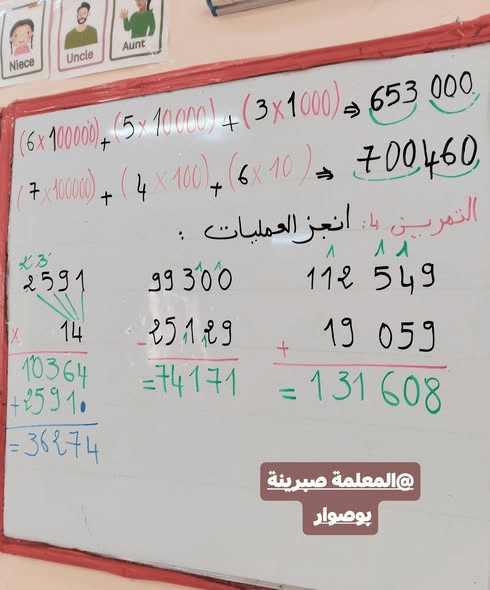 Niece
Uncle
Aunt
(6 x 100000) + (5 x 10000) + (3 x 1000) ⇒ 653 000
(7 x 100000) + (4 x 100) + (6 x 10) ⇒ 700460
التمرين 4: أنجز العمليات :
2 3
2591
x 14
10364
+ 2591•
= 36274
1 1
99300
- 25129
1 1
= 74171
1 1 1
112 549
+ 19 059
= 131 608
@المعلمة صبرينة
بوصوار